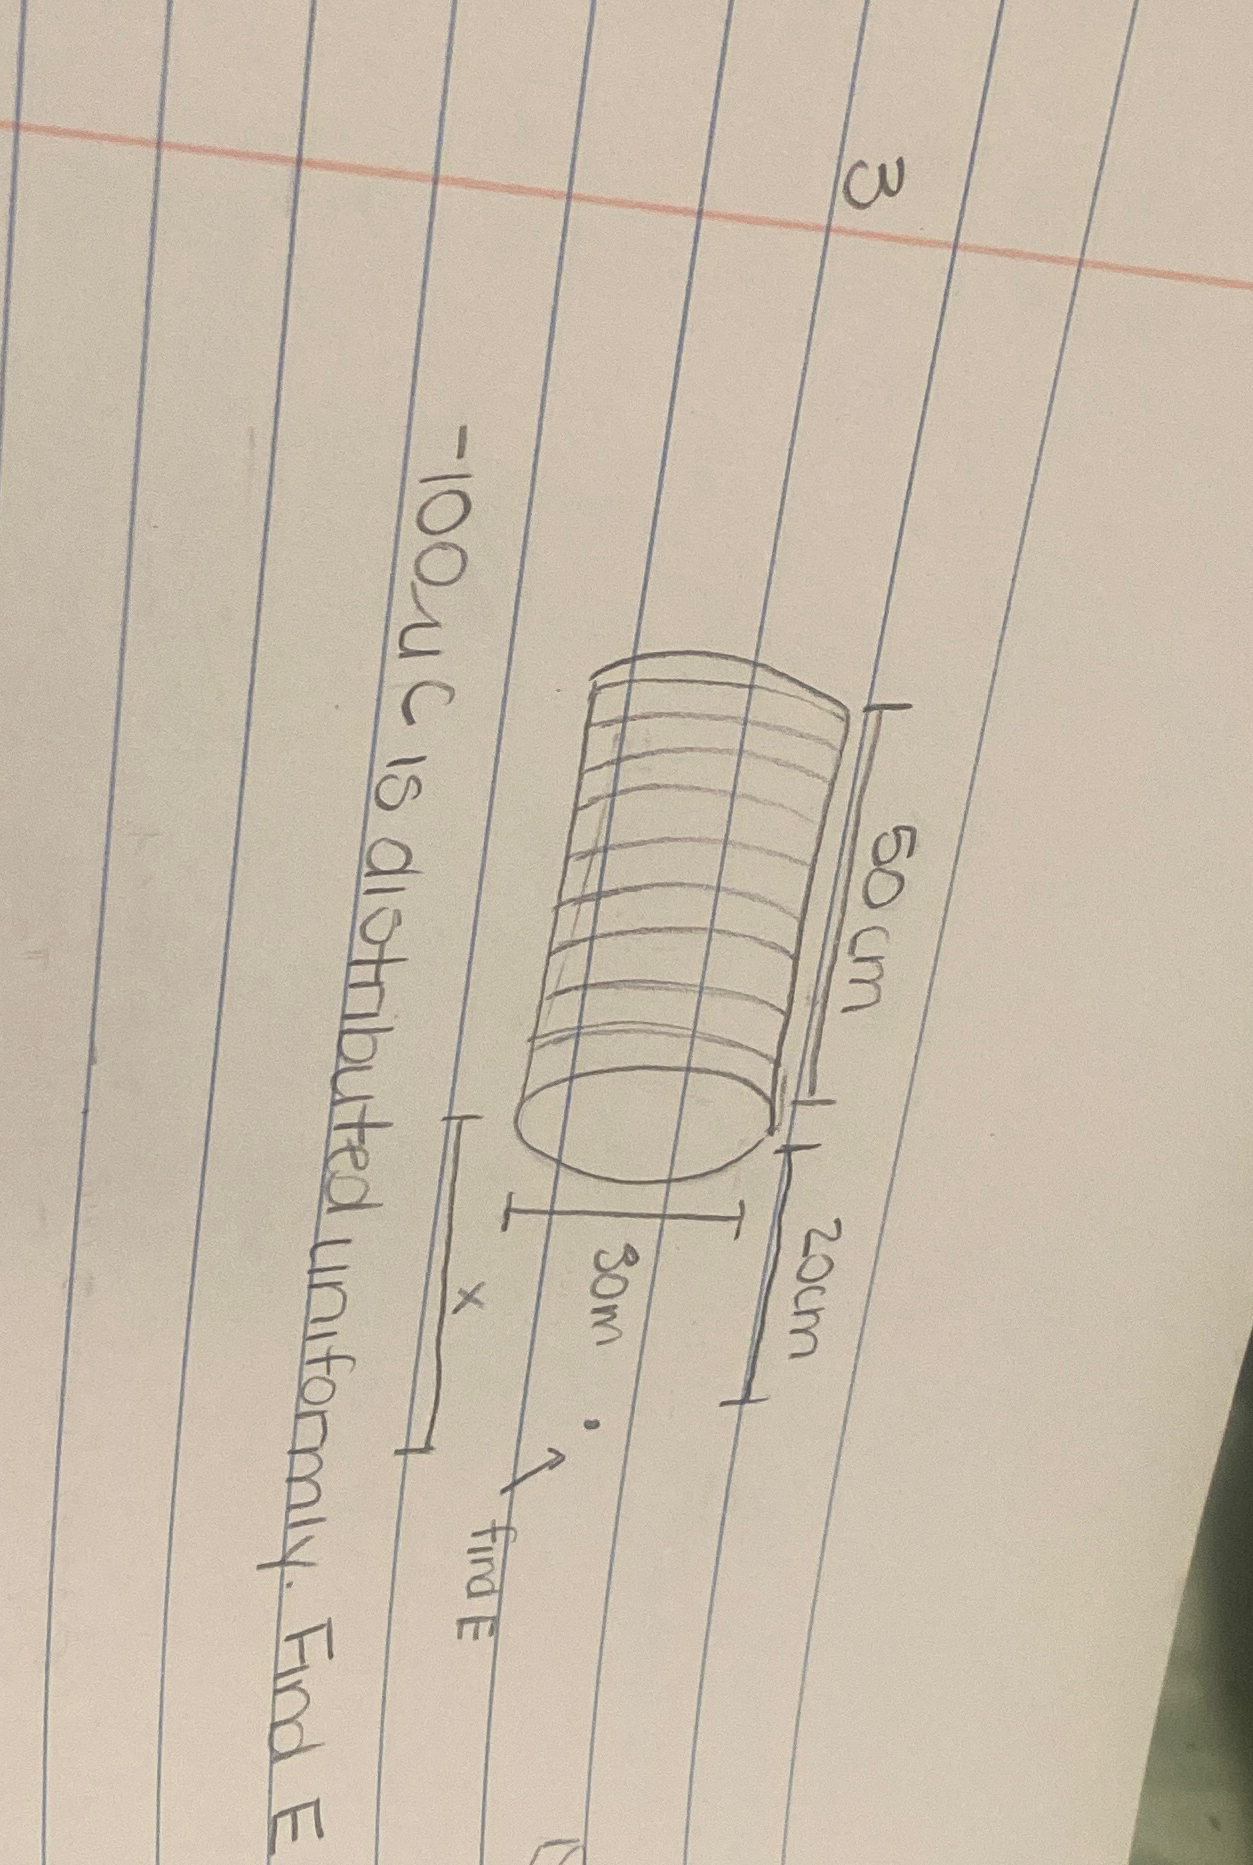 3
50 cm
20cm
30m
x
find E
-100uC is distributed uniformly. Find E